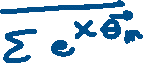 Σ e^{x θ⃗_m}